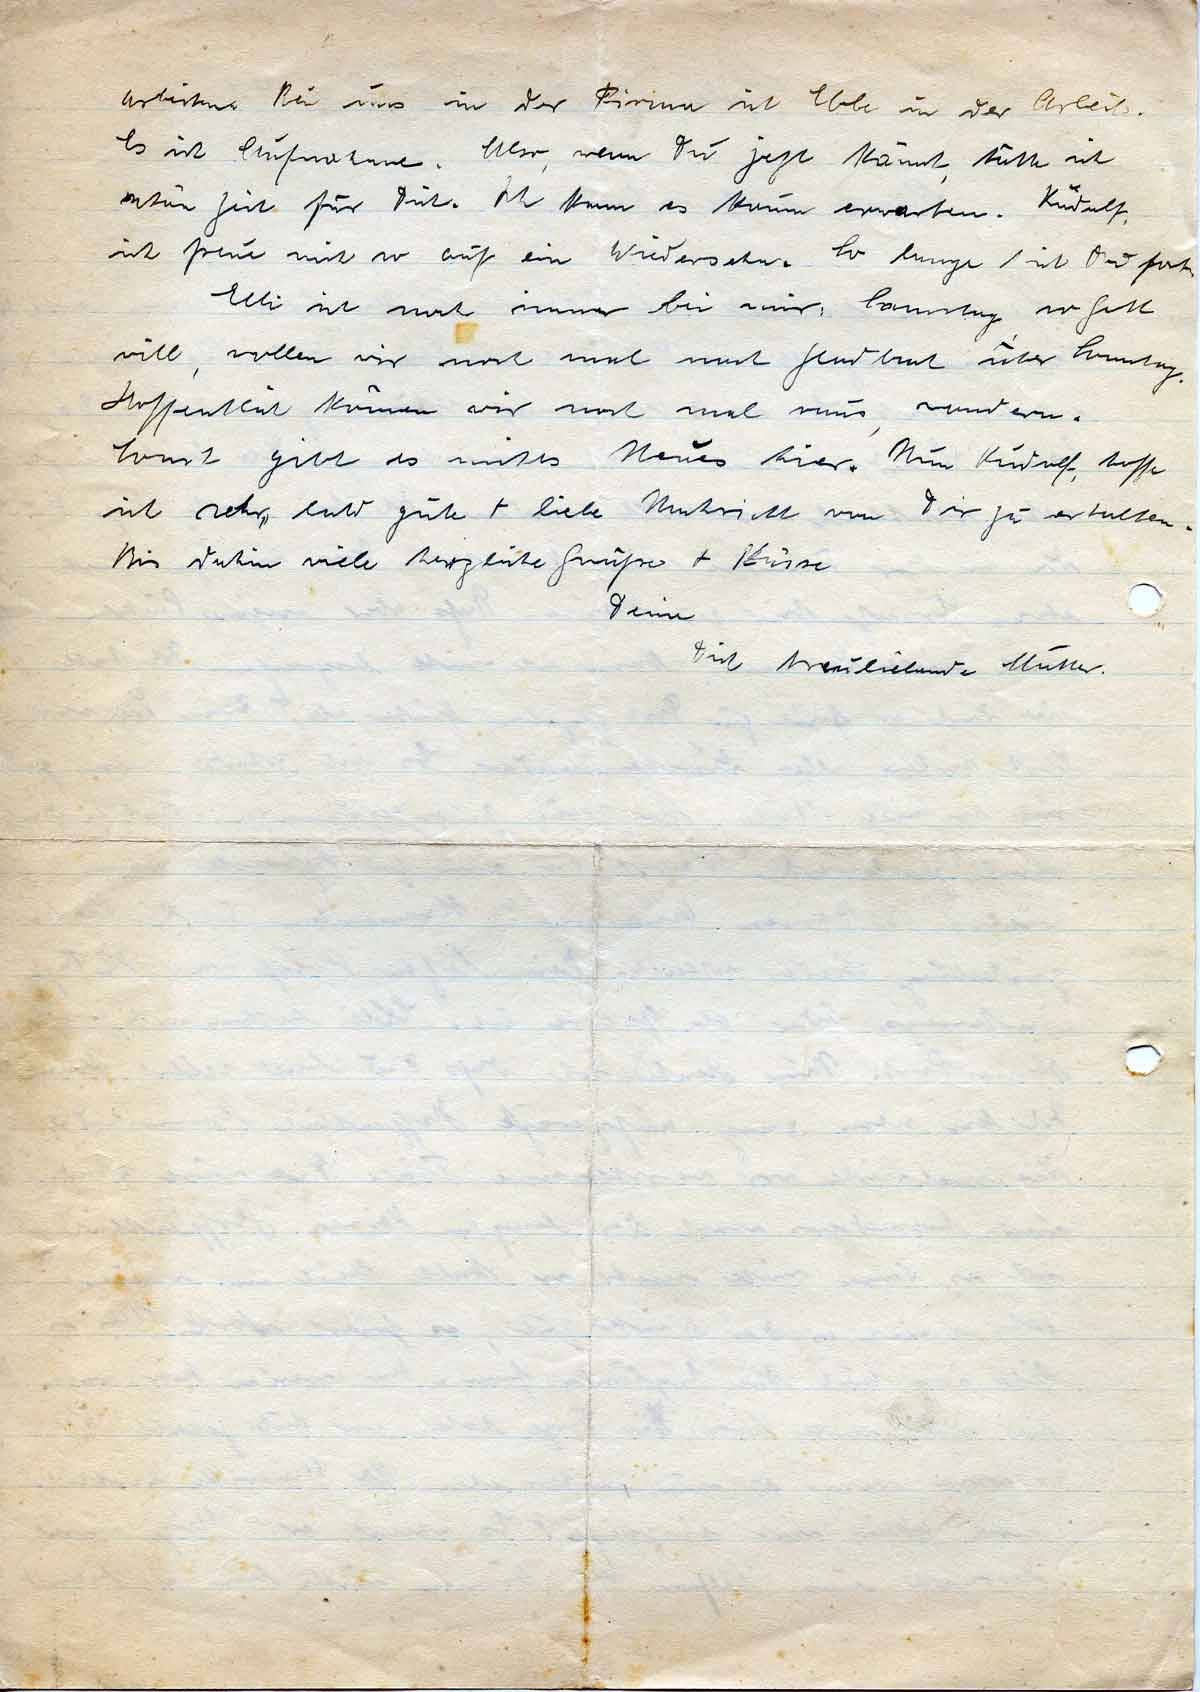 arbeiten. Bei uns in der Firma ist Ebbe in der Arbeit.
Es ist Aufnahme. Also, wenn Du jetzt kämst, hätte ich
schön Zeit für Dich. Ich kann es kaum erwarten. Rudolf,
ich freue mich so auf ein Wiedersehn. So lange bist Du fort.
Elli ist noch immer bei mir. Samstag, so Gott
will, wollen wir noch mal nach Gladbach über Sonntag.
Hoffentlich können wir noch mal raus, wandern.
Sonst gibt es nichts Neues hier. Nun Rudolf, hoffe
ich sehr, bald gute + liebe Nachricht von Dir zu erhalten.
Bis dahin viele herzliche Grüße + Küsse
Deine
Dich treuliebende Mutter.